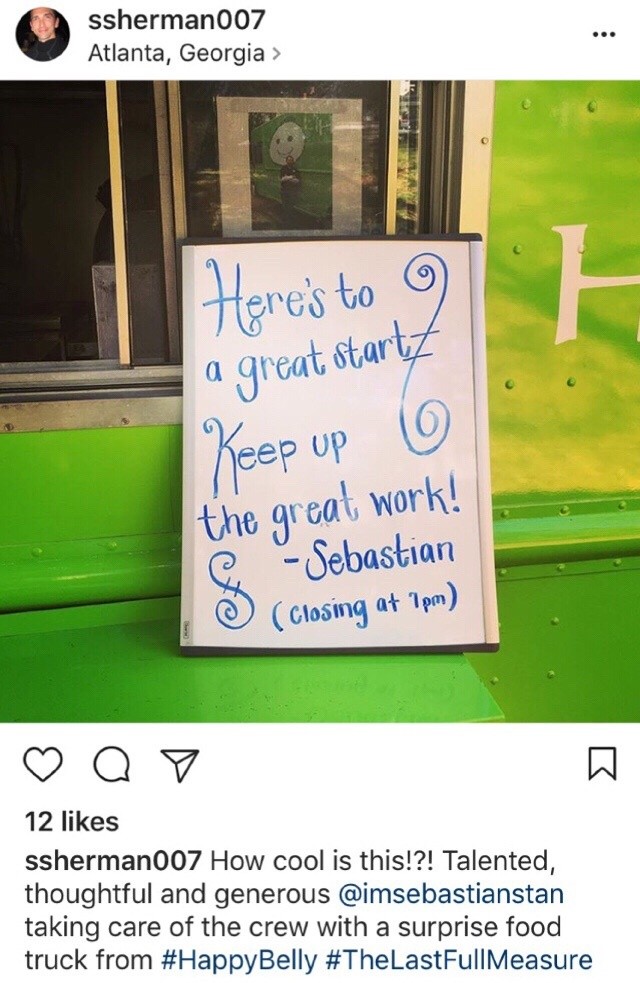 ssherman007
Atlanta, Georgia >
Here's to
a great start
Keep up
the great work!
- Sebastian
(closing at 7pm)
H
12 likes
ssherman007 How cool is this!?! Talented,
thoughtful and generous @imsebastianstan
taking care of the crew with a surprise food
truck from #HappyBelly #TheLastFullMeasure